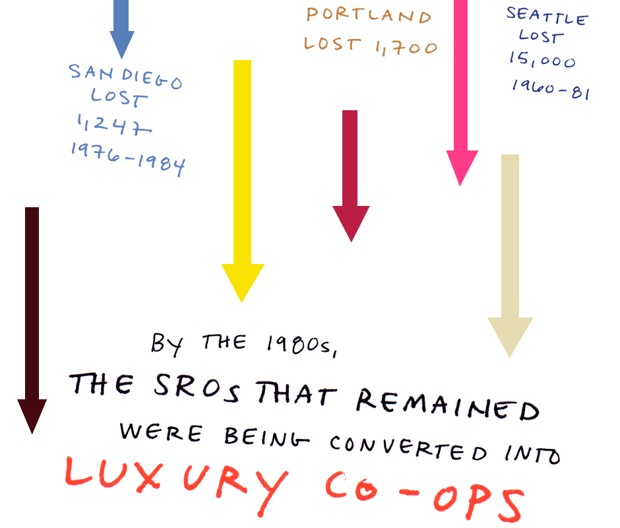 SAN DIEGO
LOST
1,247
1976-1984
PORTLAND
LOST 1,700
SEATTLE
LOST
15,000
1960-81
BY THE 1980s,
THE SROs THAT REMAINED
WERE BEING CONVERTED INTO
LUXURY CO-OPS